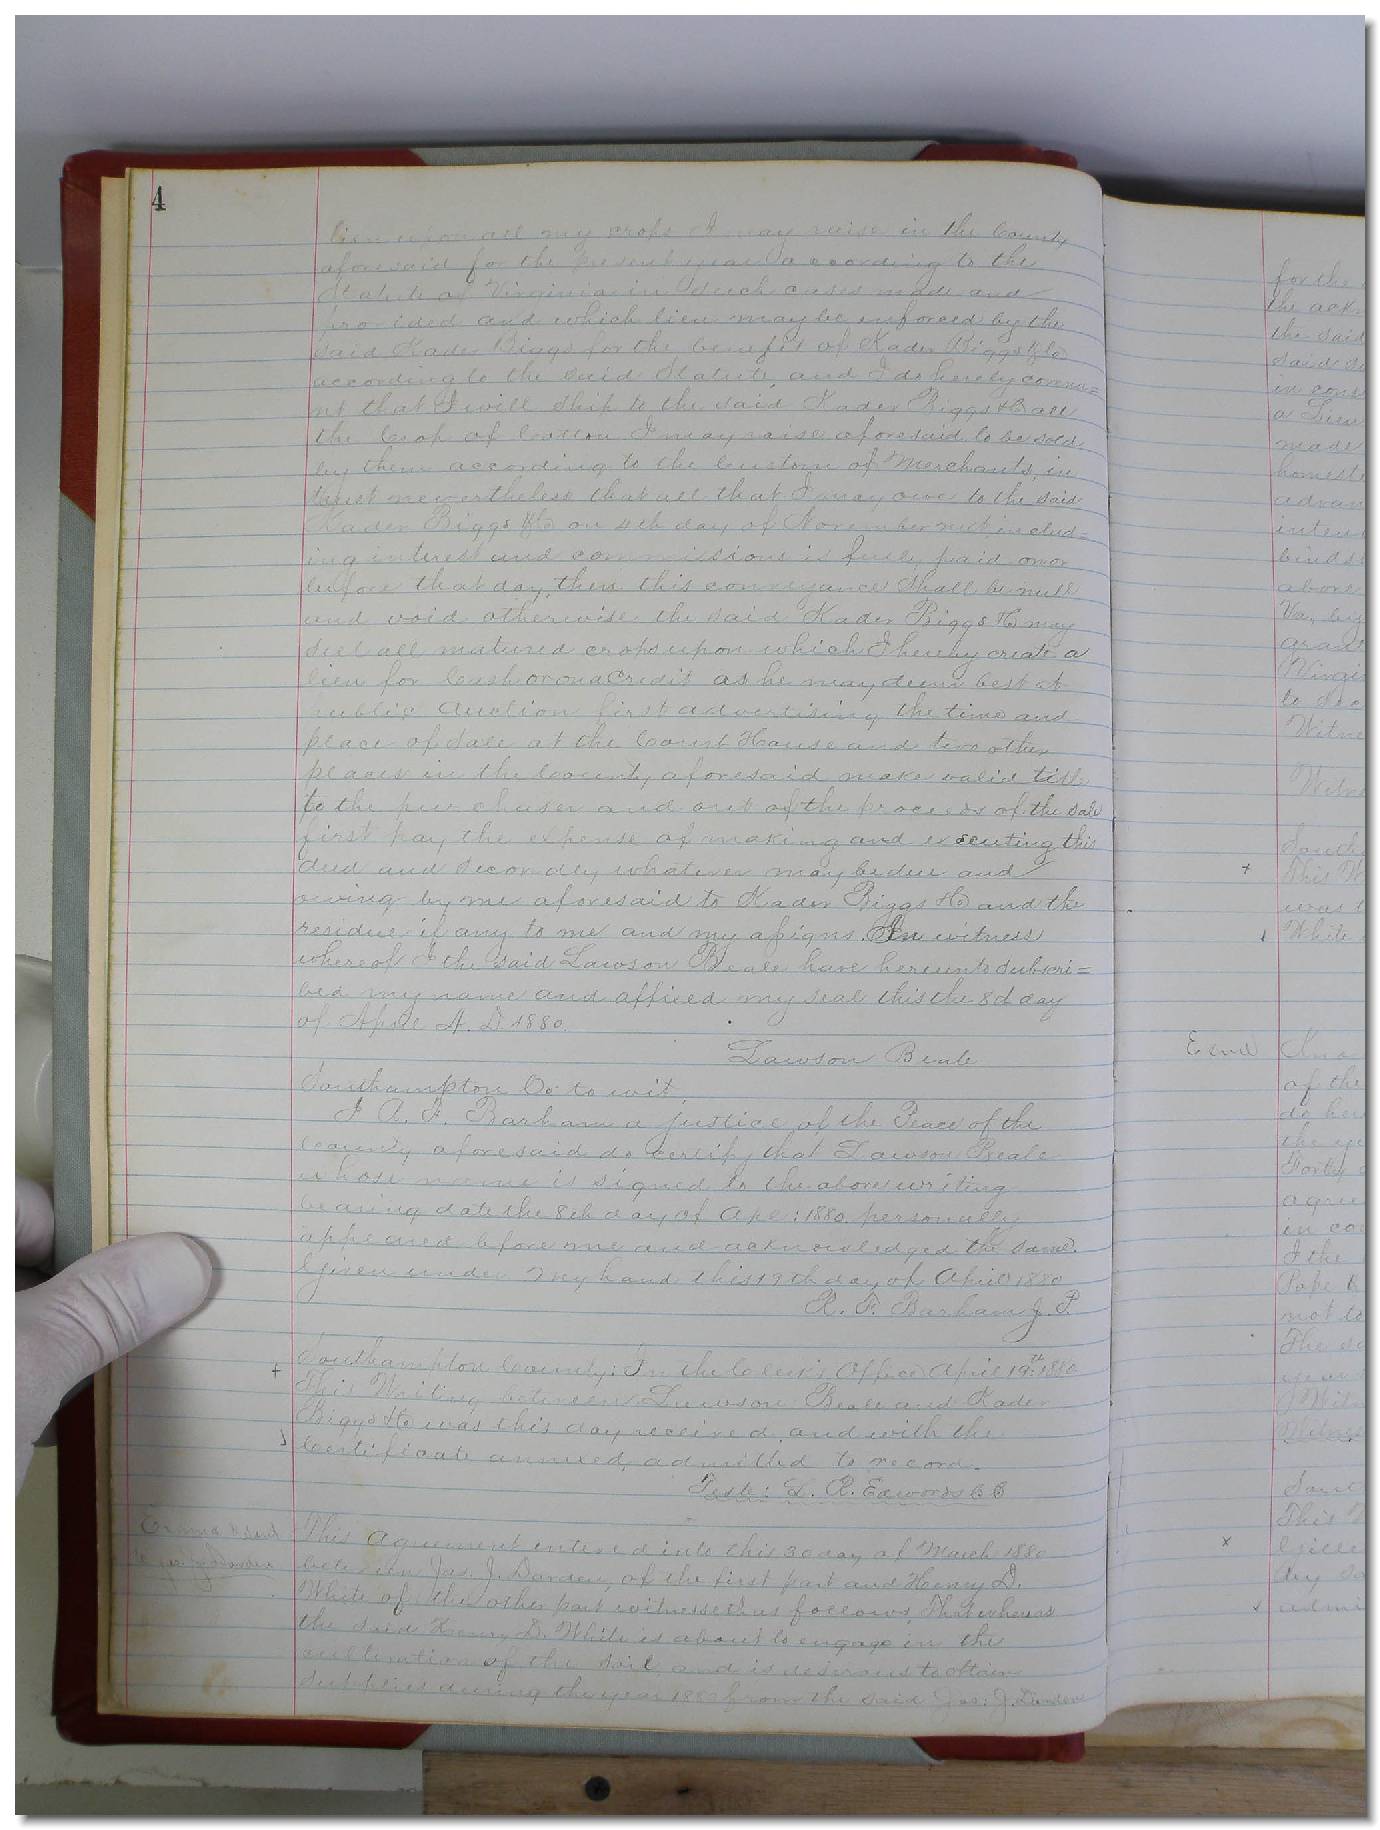 4
lien upon all my crops I may raise in the County
aforesaid for the present year according to the
Statute of Virginia in such cases made and
provided and which lien may be enforced by the
said Kader Biggs for the benefit of Kader Biggs & Co
according to the said Statute, and I do hereby covena=
nt that I will ship to the said Kader Biggs & Co all
the Crop of Cotton I may raise aforesaid to be sold
by them according to the Custom of Merchants, in
trust nevertheless that all that I may owe to the said
Kader Biggs & Co on 4th day of November next includ=
ing interest and commissions is fully paid on or
before that day, then this conveyance Shall be null
and void otherwise the said Kader Biggs & Co may
sell all matured crops upon which I hereby create a
lien for Cash or on a Credit as he may deem best at
public Auction first advertising the time and
place of sale at the Court House and two other
places in the County aforesaid make valid title
to the purchaser and out of the proceeds of the sale
first pay the expense of making and executing this
deed and secondly whatever may be due and
owing by me aforesaid to Kader Biggs & Co and the
residue if any to me and my assigns. In witness
whereof I the said Lawson Beale have hereunto subscri=
bed my name and affixed my seal this the 8d day
of April A. D 1880.
Lawson Beale
Southampton Co to wit
I A. F. Barham a justice of the Peace of the
County aforesaid do certify that Lawson Beale
whose name is signed to the above writing
bearing date the 8th day of Apl: 1880 personally
appeared before me and acknowledged the same.
Given under my hand this 19th day of April 1880
R. F. Barham J. P.
+ Southampton County: In the Clerk's Office April 19th 1880
This Writing between Lawson Beale and Kader
Biggs & Co was this day received and with the
Certificate annexed, admitted to record.
Teste: L. R. Edwards C C
This Agreement entered into this 30 day of March 1880
between Jas. J. Darden, of the first part and Henry D.
White of the other part witnesseth as follows, That whereas
the said Henry D. White is about to engage in the
cultivation of the soil, and is desirous to obtain
supplies during the year 1880 from the said Jas: J. Darden
for the
the ack
the said
said
in cons
a Lien
made
homest
advan
inten
binds
above
Va,
grant
Virgi
to
Witne
Witne
South
+ This W
was t
White
E end
of the
do her
the ye
Forty
agree
in co
I the
Pope
not to
The
year
Witn
Witness
Sout
This
x
day
admi